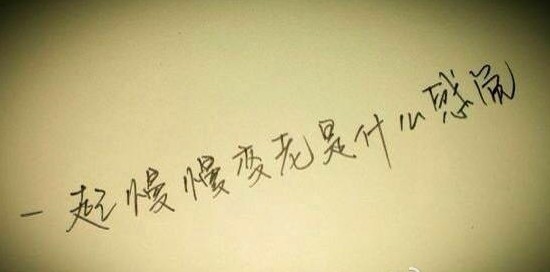 一起慢慢变老是什么感觉